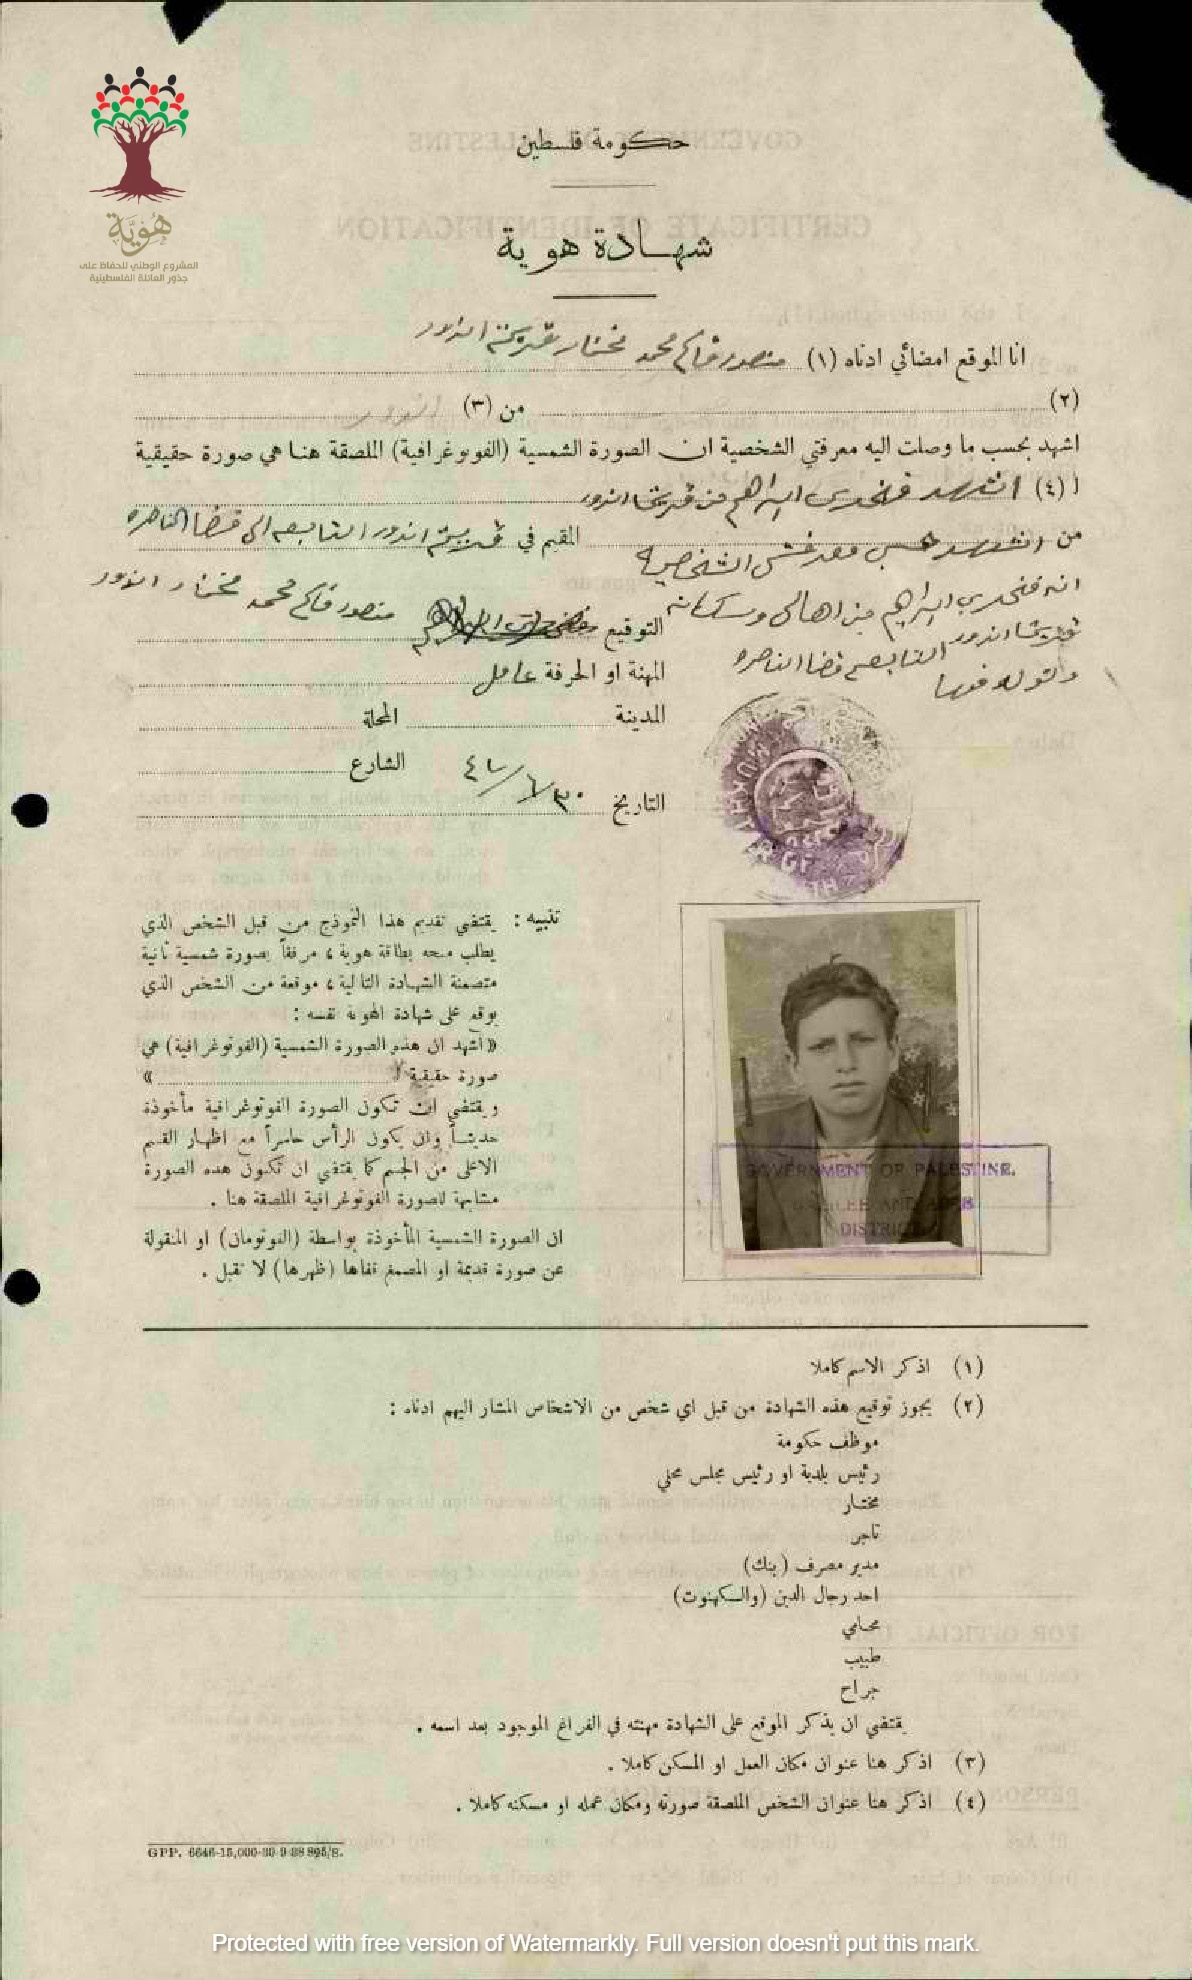 هُوِيَّة
المشروع الوطني للحفاظ على
جذور العائلة الفلسطينية
حكومة فلسطين
شهادة هوية
انا الموقع امضائي ادناه (١) منصور قاسم محمد مختار قرية اندور
(٢) من (٣) اندور
اشهد بحسب ما وصلت اليه معرفتي الشخصية ان الصورة الشمسية (الفوتوغرافية) الملصقة هنا هي صورة حقيقية
ا (٤) اشهد ابراهيم من قرية اندور
من اشهد حسب معرفتي الشخصية المقيم في قرية اندور التابعه الى قضا الناصره
انه ابراهيم من اهالي وسكان
قرية اندور التابعه قضا الناصره
فيها
التوقيع منصور قاسم محمد مختار اندور
المهنة او الحرفة عامل
المدينة المحلة
الشارع
التاريخ ٣٠/٦/
تنبيه : يقتضي تقديم هذا النموذج من قبل الشخص الذي
يطلب منحه بطاقة هوية ، مرفقاً بصورة شمسية ثانية
متضمنة الشهادة التالية ، موقعة من الشخص الذي
يوقع على شهادة الهوية نفسه :
« اشهد ان هذه الصورة الشمسية (الفوتوغرافية) هي
صورة حقيقية ل »
ويقتضي ان تكون الصورة الفوتوغرافية مأخوذة
حديثاً وان يكون الرأس حاسراً مع اظهار القسم
الاعلى من الجسم كما يقتضي ان تكون هذه الصورة
مشابهة للصورة الفوتوغرافية الملصقة هنا .
ان الصورة الشمسية المأخوذة بواسطة (الفوتومان) او المنقولة
عن صورة قديمة او المصمغ قفاها (ظهرها) لا تقبل .
GOVERNMENT OF PALESTINE.
GALILEE AND ACRE
DISTRICT
(١) اذكر الاسم كاملا
(٢) يجوز توقيع هذه الشهادة من قبل اي شخص من الاشخاص المشار اليهم ادناه :
موظف حكومة
رئيس بلدية او رئيس مجلس محلي
مختار
تاجر
مدير مصرف (بنك)
احد رجال الدين (والكهنوت)
محامي
طبيب
جراح
يقتضي ان يذكر الموقع على الشهادة مهنته في الفراغ الموجود بعد اسمه .
(٣) اذكر هنا عنوان مكان العمل او المسكن كاملا .
(٤) اذكر هنا عنوان الشخص الملصقة صورته ومكان عمله او مسكنه كاملا .
GPP. 6646-15,000-30-9-38 895/S.
Protected with free version of Watermarkly. Full version doesn't put this mark.